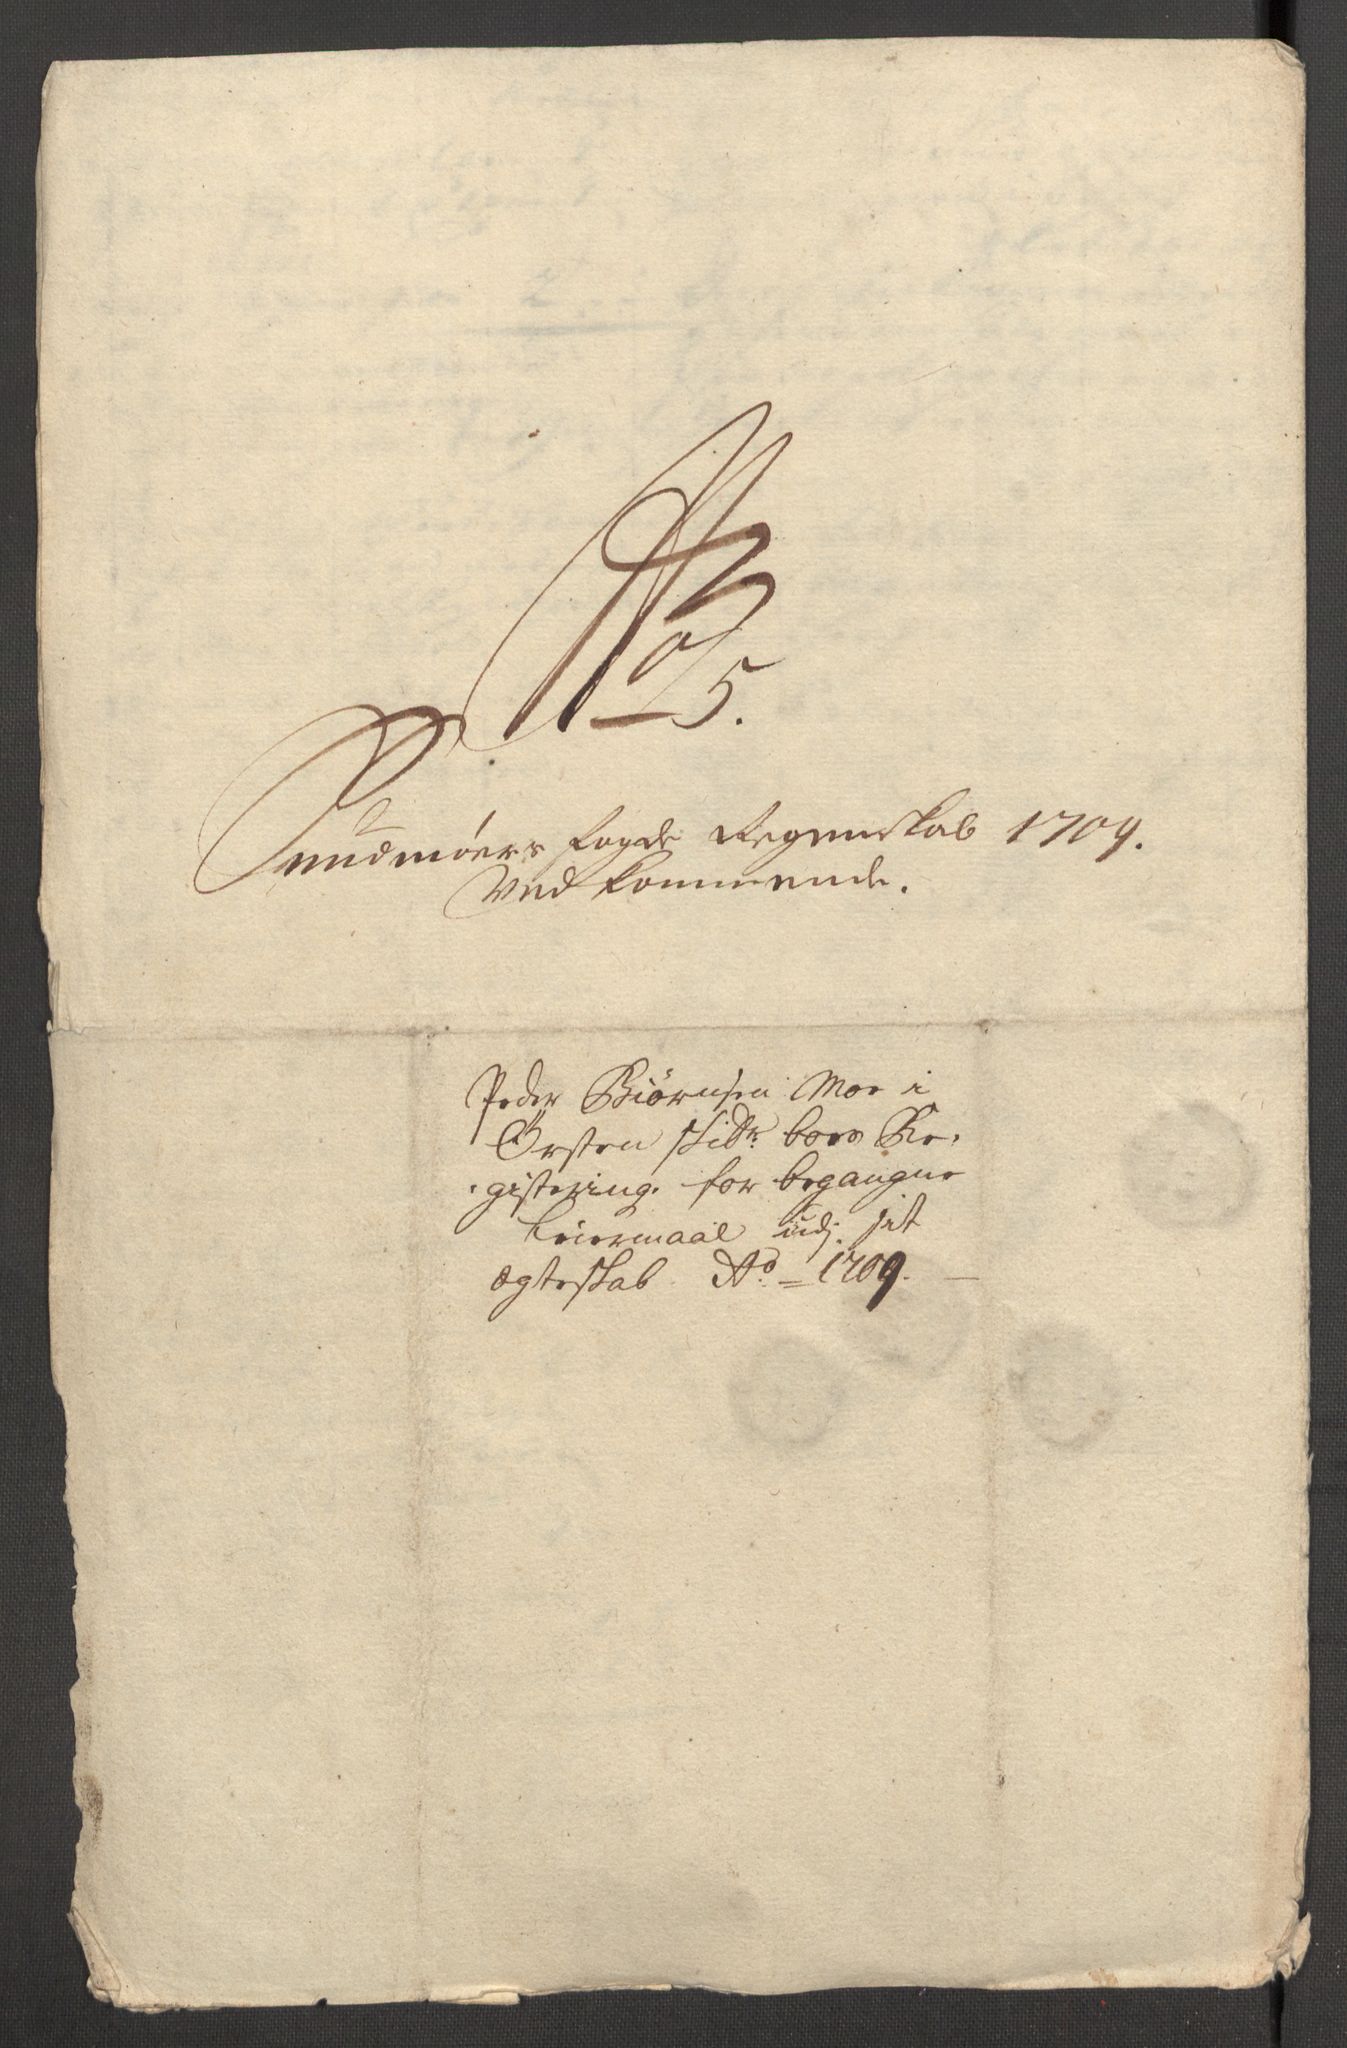 No 5.
Sundmøers fogde Regenskab 1709.
Ved kommende.
Peder Biørnsen Moe i
Ørsten boes Re-
gistering for begangne
Leiermaal udj sit
ægteskab Ao = 1709.